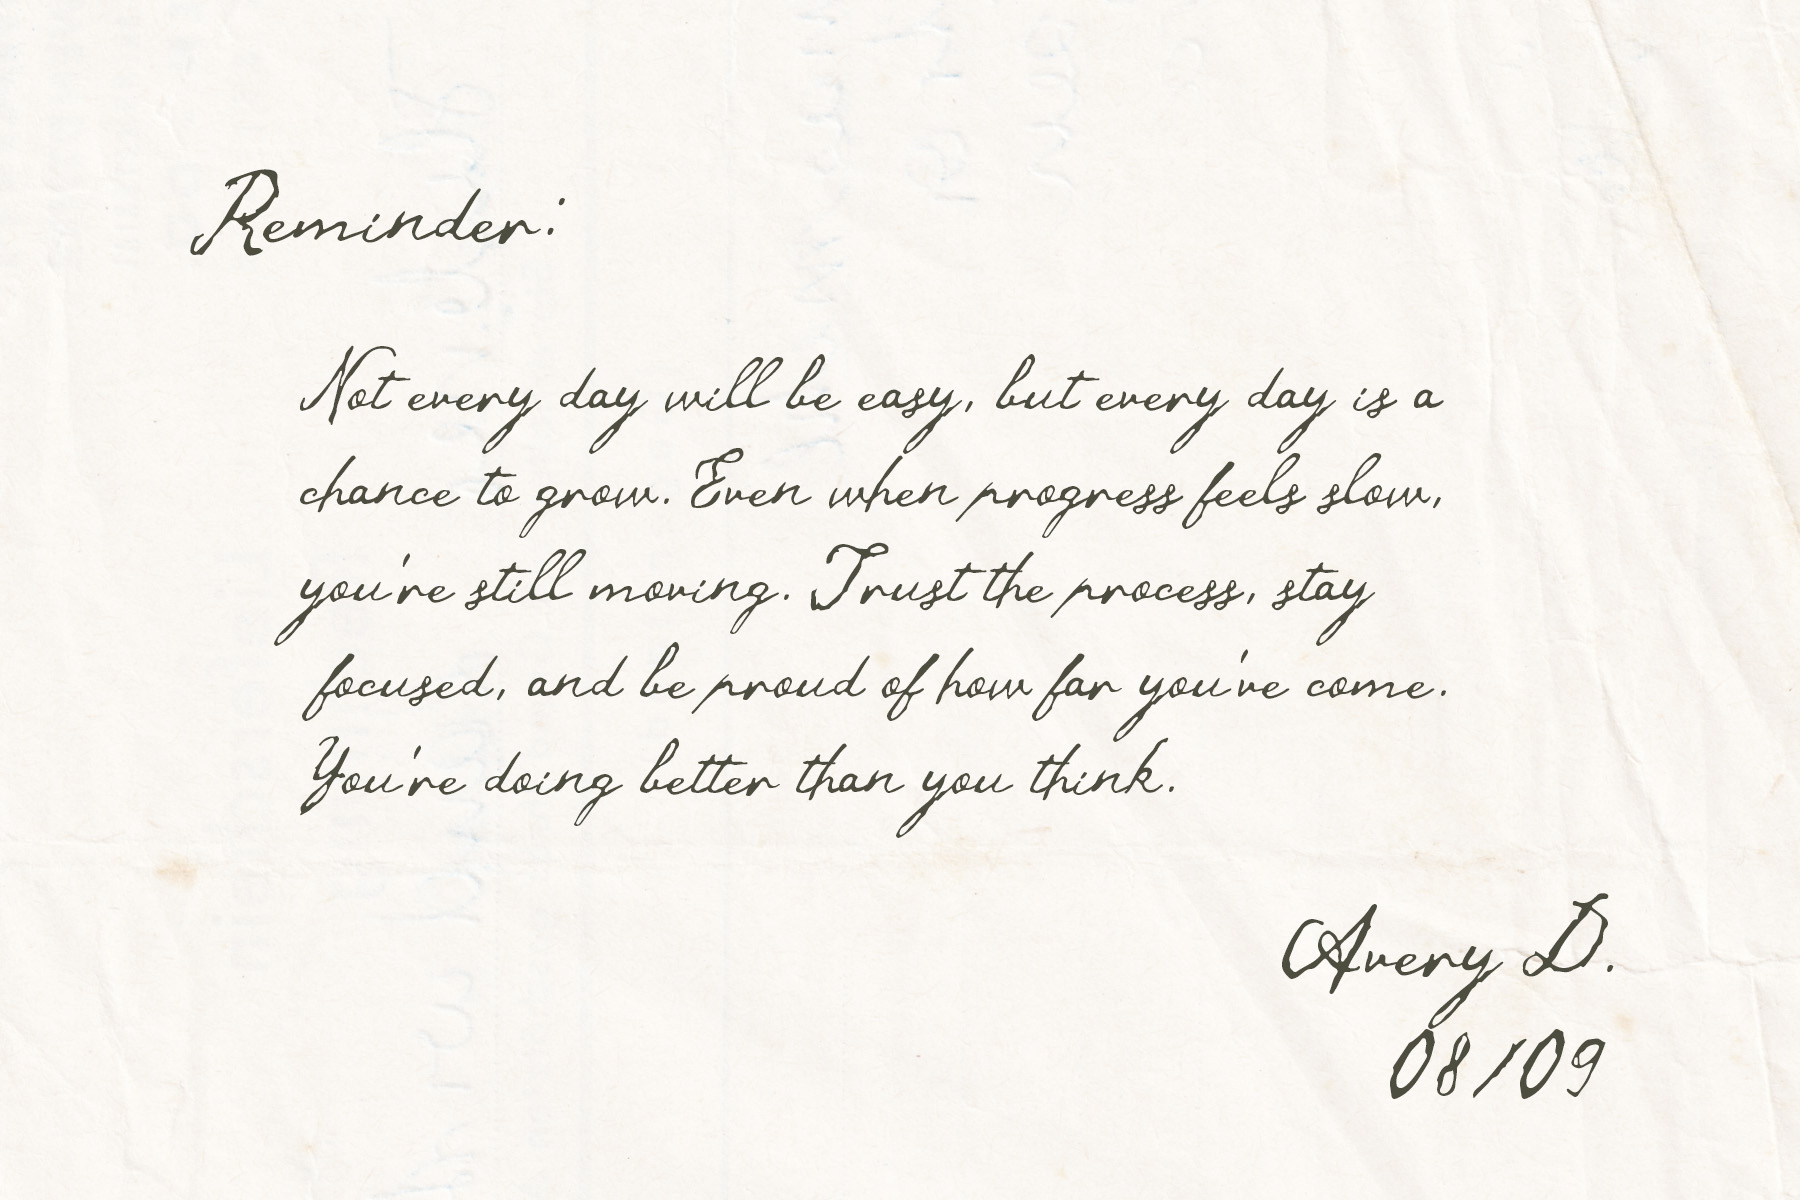 Reminder:
Not every day will be easy, but every day is a
chance to grow. Even when progress feels slow,
you're still moving. Trust the process, stay
focused, and be proud of how far you've come.
You're doing better than you think.
Avery D.
08/09